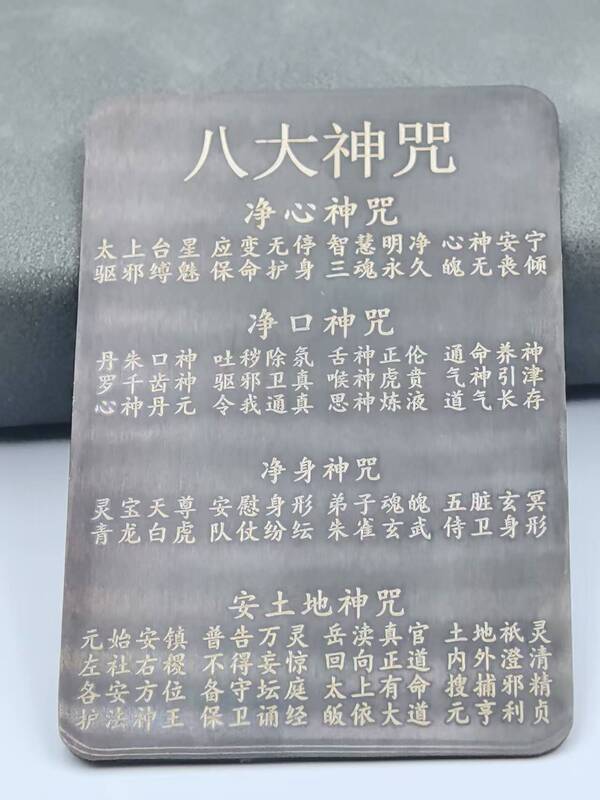 八大神咒
净心神咒
太上台星 应变无停 智慧明净 心神安宁
驱邪缚魅 保命护身 三魂永久 魄无丧倾
净口神咒
丹朱口神 吐秽除氛 舌神正伦 通命养神
罗千齿神 驱邪卫真 喉神虎贲 气神引津
心神丹元 令我通真 思神炼液 道气长存
净身神咒
灵宝天尊 安慰身形 弟子魂魄 五脏玄冥
青龙白虎 队仗纷纭 朱雀玄武 侍卫身形
安土地神咒
元始安镇 普告万灵 岳渎真官 土地祇灵
左社右稷 不得妄惊 回向正道 内外澄清
各安方位 备守坛庭 太上有命 搜捕邪精
护法神王 保卫诵经 皈依大道 元亨利贞